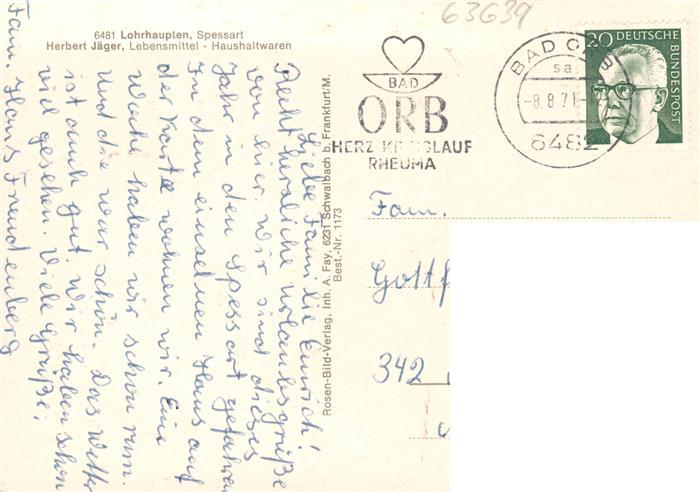 63639
6481 Lohrhaupten, Spessart
Herbert Jäger, Lebensmittel - Haushaltwaren
BAD
ORB
HERZ KREISLAUF
RHEUMA
BAD ORB
sa
-8.8.71
6482
20 DEUTSCHE
BUNDESPOST
Liebe Familie Emrich!
Recht herzliche Urlaubsgrüße
von hier. Wir sind dieses
Jahr in den Spessart gefahren
In dem einzelnen Haus auf
der Karte wohnen wir. Eine
Woche haben wir schon rum.
Und die war schön. Das Wetter
ist auch gut. Wir haben schon
viel gesehen. Viele Grüße:
Fam. Hans Freudenberg
Rosen-Bild-Verlag, Inh. A. Fay, 6231 Schwalbach b. Frankfurt/M.
Best.-Nr. 1173
Fam.
Gottf
342